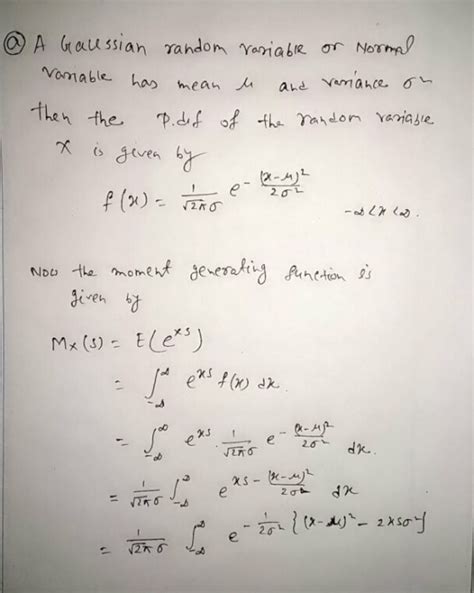 ⓐ A Gaussian random variable or Normal
variable has mean μ and variance σ²
then the p.d.f of the random variable
X is given by
f(x) = 1/√2π σ e^-(x-μ)²/2σ²   -∞ < x < ∞.
Now the moment generating function is
given by
Mx(s) = E(e^xs)
= ∫_-∞^∞ e^xs f(x) dx.
= ∫_-∞^∞ e^xs . 1/√2π σ e^-(x-μ)²/2σ² dx.
= 1/√2π σ ∫_-∞^∞ e^xs-(x-μ)²/2σ² dx
= 1/√2π σ ∫_-∞^∞ e^-1/2σ² {(x-μ)² - 2xsσ²}